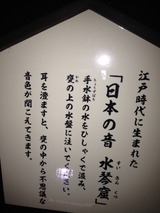 江戸時代に生まれた
「日本の音 水琴窟」
すい きん くつ
手水鉢の水をひしゃくで汲み、
甕の上の水盤に注いでください。
耳を澄ますと、甕の中から不思議な
音色が聞こえてきます。